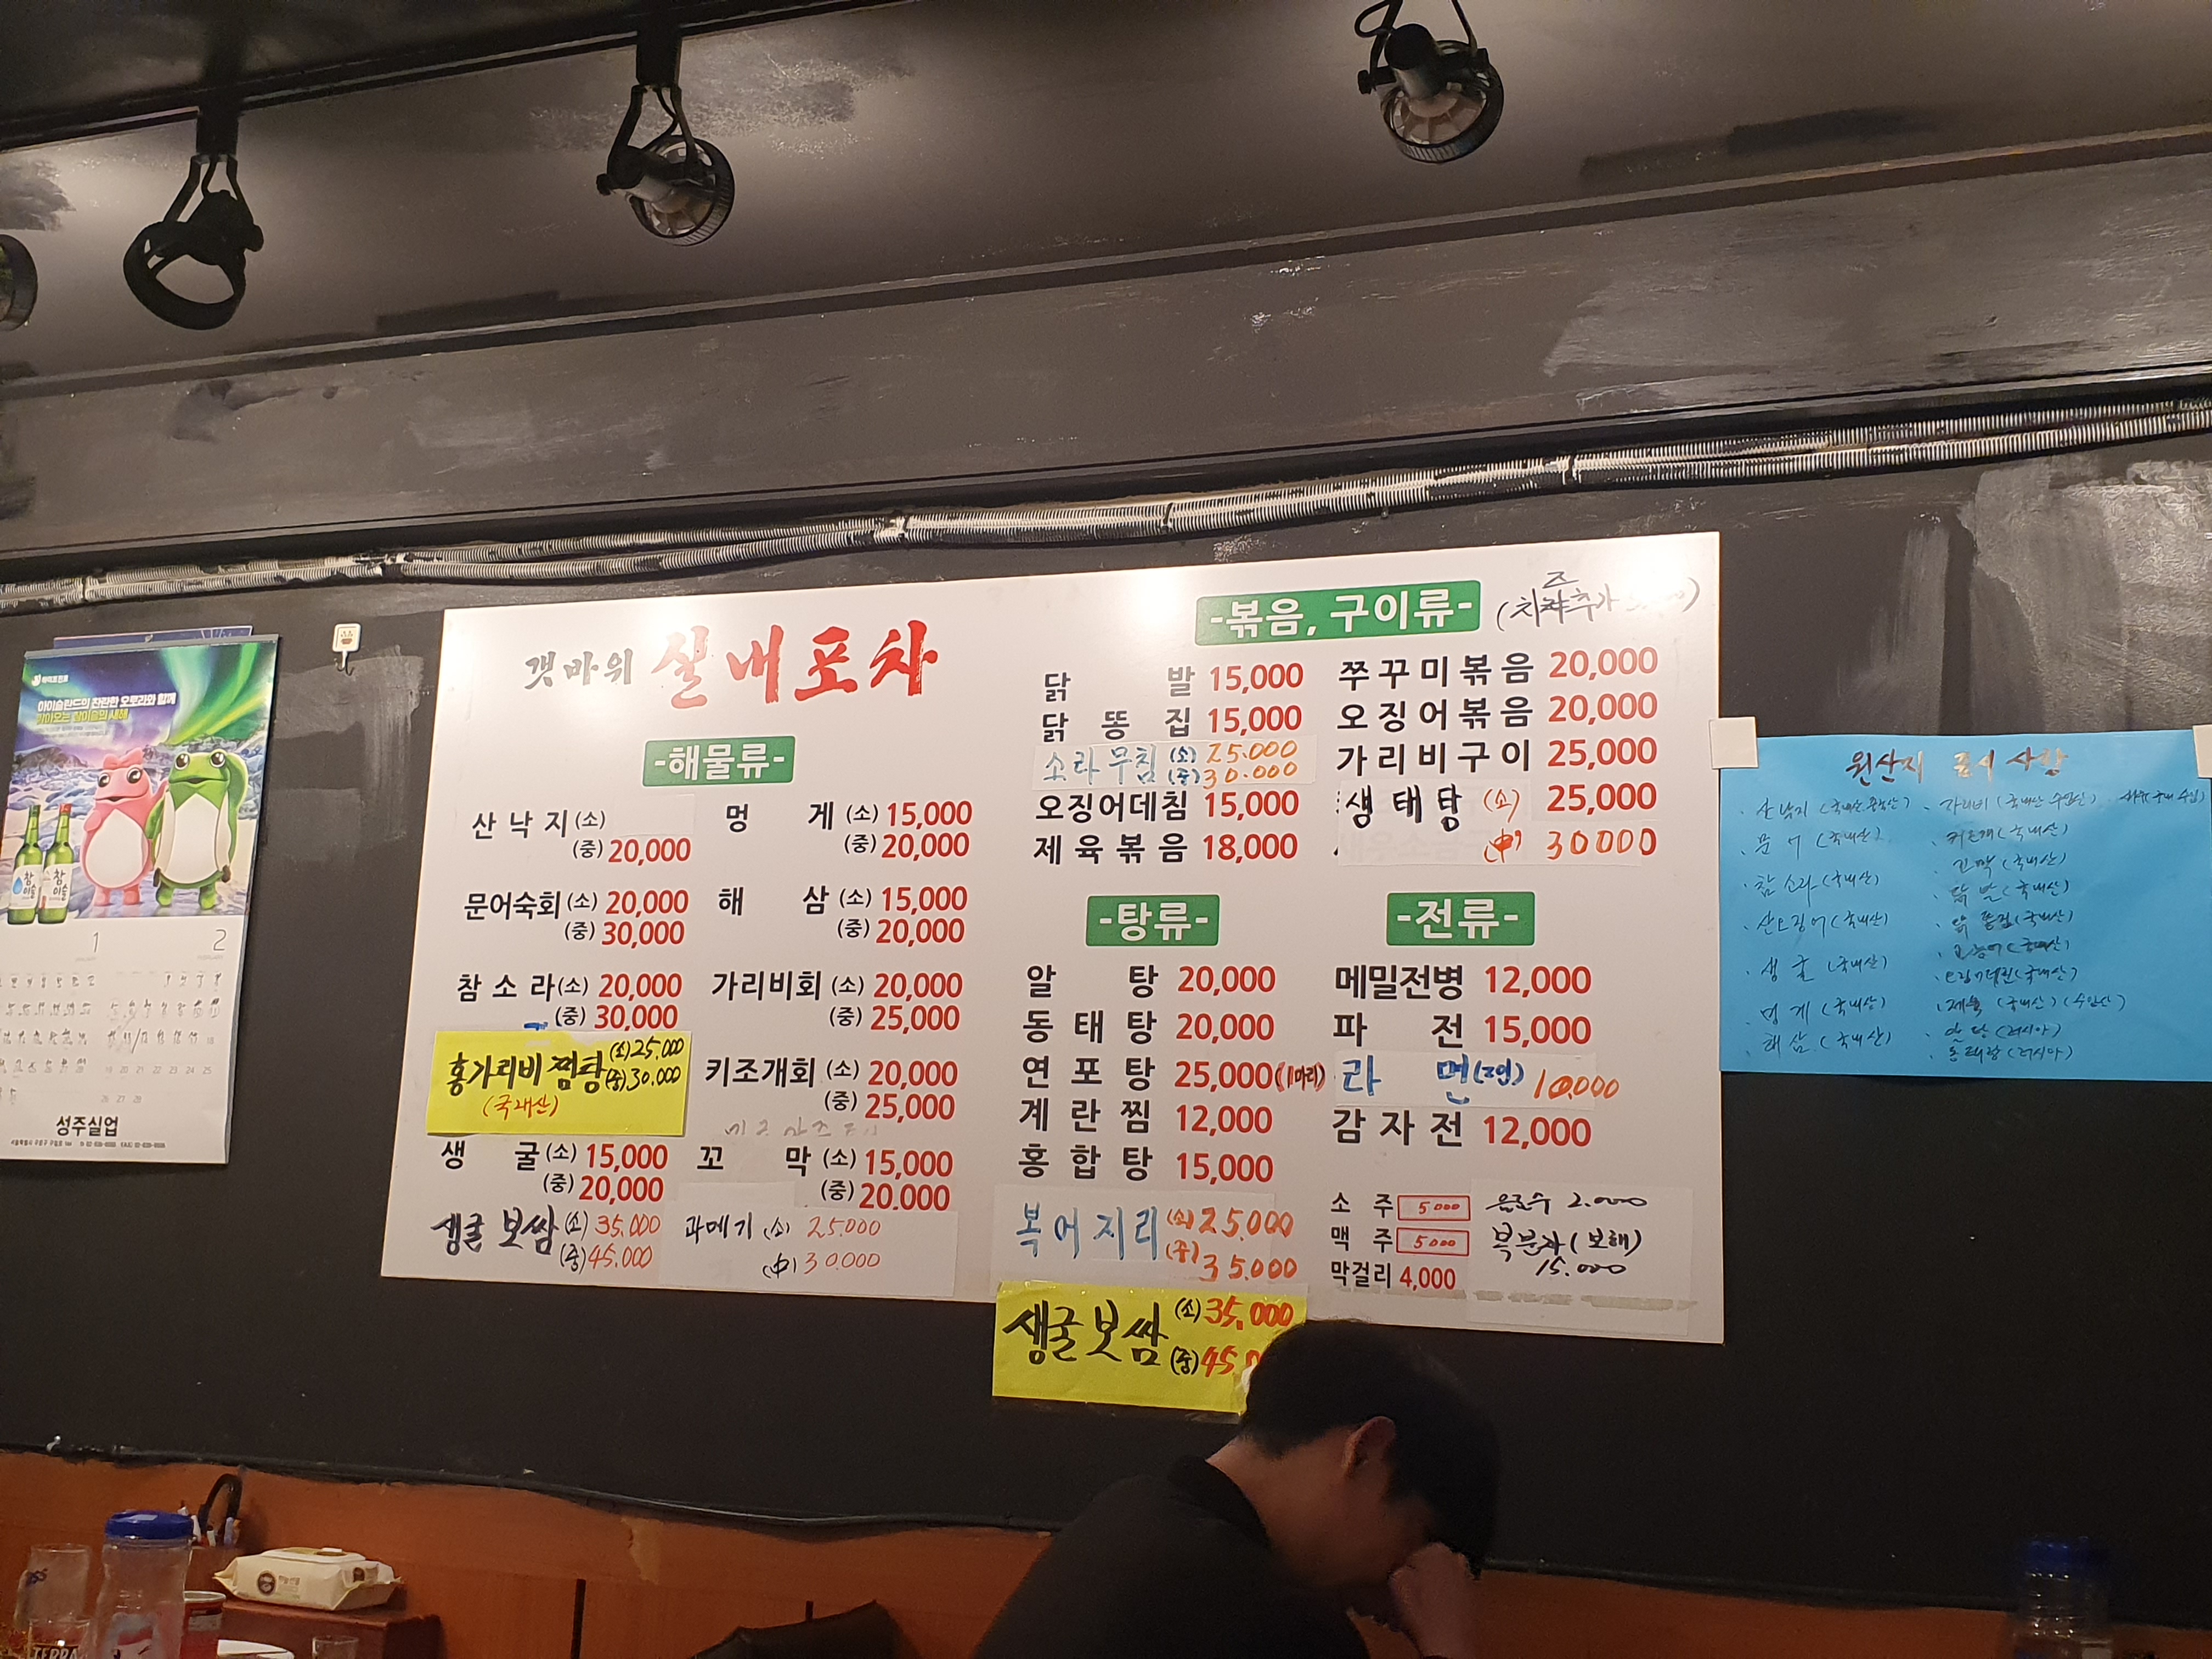 하이트진로
아이슬란드의 찬란한 오로라와 함께
참이슬의 새해
참이슬
참이슬
1
2
성주실업
갯바위 실내포차
-해물류-
산낙지 (소)
(중) 20,000
문어숙회 (소) 20,000
(중) 30,000
참소라 (소) 20,000
(중) 30,000
홍가리비찜탕 (소) 25.000
(중) 30.000
(국내산)
생굴 (소) 15,000
(중) 20,000
생굴보쌈 (소) 35.000
(중) 45.000
멍게 (소) 15,000
(중) 20,000
해삼 (소) 15,000
(중) 20,000
가리비회 (소) 20,000
(중) 25,000
키조개회 (소) 20,000
(중) 25,000
꼬막 (소) 15,000
(중) 20.000
과메기 (소) 25.000
(中) 30.000
-볶음, 구이류-
닭발 15,000
닭똥집 15,000
소라무침 (소) 25.000
(중) 30.000
오징어데침 15,000
제육볶음 18,000
쭈꾸미볶음 20,000
오징어볶음 20,000
가리비구이 25,000
생태탕 (소) 25,000
(中) 30000
-탕류-
알탕 20,000
동태탕 20,000
연포탕 25,000 (1마리)
계란찜 12,000
홍합탕 15,000
복어지리 (소) 25.000
(중) 35.000
생굴보쌈 (소) 35.000
(중) 45.0
-전류-
메밀전병 12,000
파전 15,000
라면 10.000
감자전 12,000
소주 5000
맥주 5000
막걸리 4,000
음료수 2.000
복분자 (보해)
15.000
원산지 표시 사항
문어 (국내산)
참소라 (국내산)
산오징어 (국내산)
생굴 (국내산)
멍게 (국내산)
해삼 (국내산)
가리비 (국내산 수입산)
키조개 (국내산)
꼬막 (국내산)
닭발 (국내산)
닭똥집 (국내산)
제육 (국내산) (수입산)
알탕 (러시아)
동태탕 (러시아)
TERRA